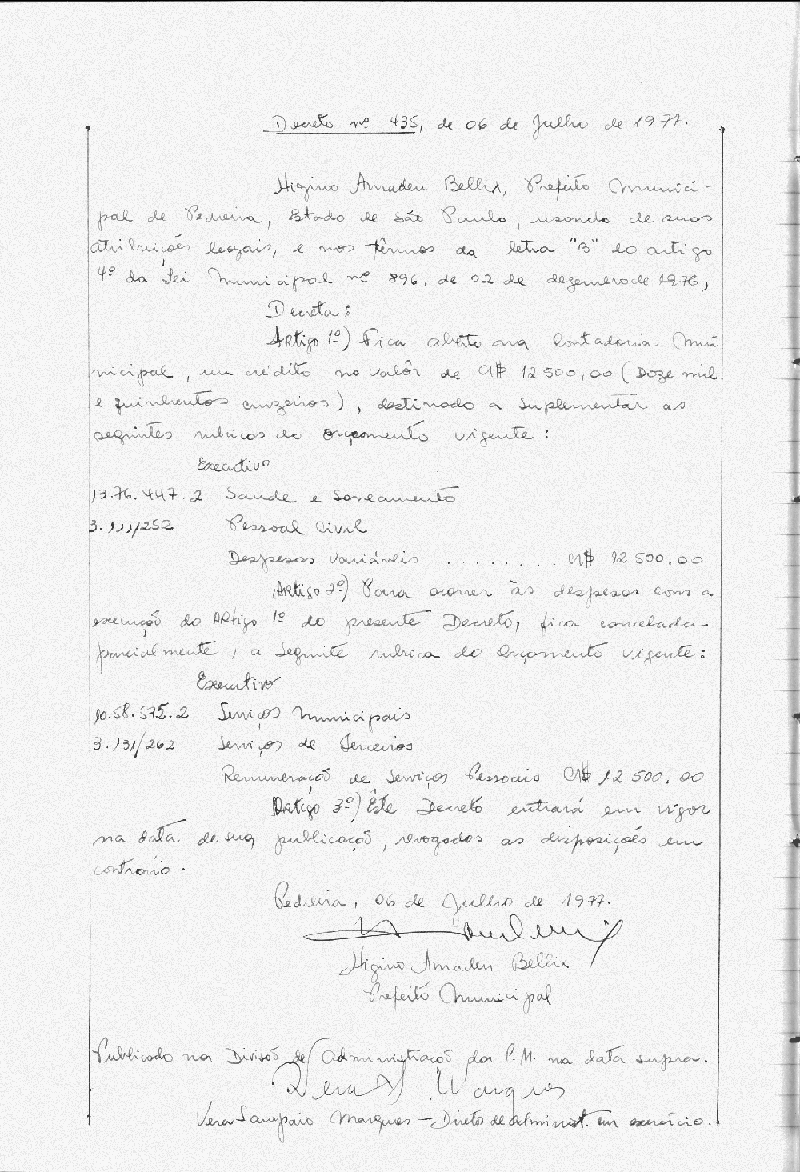 Decreto nº 435, de 06 de Julho de 1977.
Higino Amadeu Bellix, Prefeito Munici-
pal de Pedreira, Estado de São Paulo, usando de suas
atribuições legais, e nos têrmos da letra "B" do artigo
4º da Lei Municipal nº 896, de 02 de dezembro de 1976,
Decreta:
Artigo 1º) Fica aberto na Contadoria Mu
nicipal, um crédito no valôr de CR$ 12 500,00 (Doze mil
e quinhentos cruzeiros), destinado a suplementar as
seguintes rubricas do orçamento vigente:
Executivo
13.76.447.2 Saude e Saneamento
3.111/252 Pessoal Civil
Despesas Variáveis ........ CR$ 12 500,00
Artigo 2º) Para ocorrer às despesas com a
execução do Artigo 1º do presente Decreto, fica cancelada
parcialmente, a seguinte rubrica do Orçamento vigente:
Executivo
10.58.575.2 Serviços Municipais
3.131/262 Serviços de Terceiros
Remuneração de Serviços Pessoais CR$ 12 500,00
Artigo 3º) Êste Decreto entrará em vigor
na data de sua publicação, revogadas as disposições em
contrário.
Pedreira, 06 de Julho de 1977.
Higino Amadeu Bellix
Prefeito Municipal
Publicado na Divisão de Administração da P.M. na data supra.
Vera S. Marques
Vera Sampaio Marques – Diretº de Administ. em exercício.